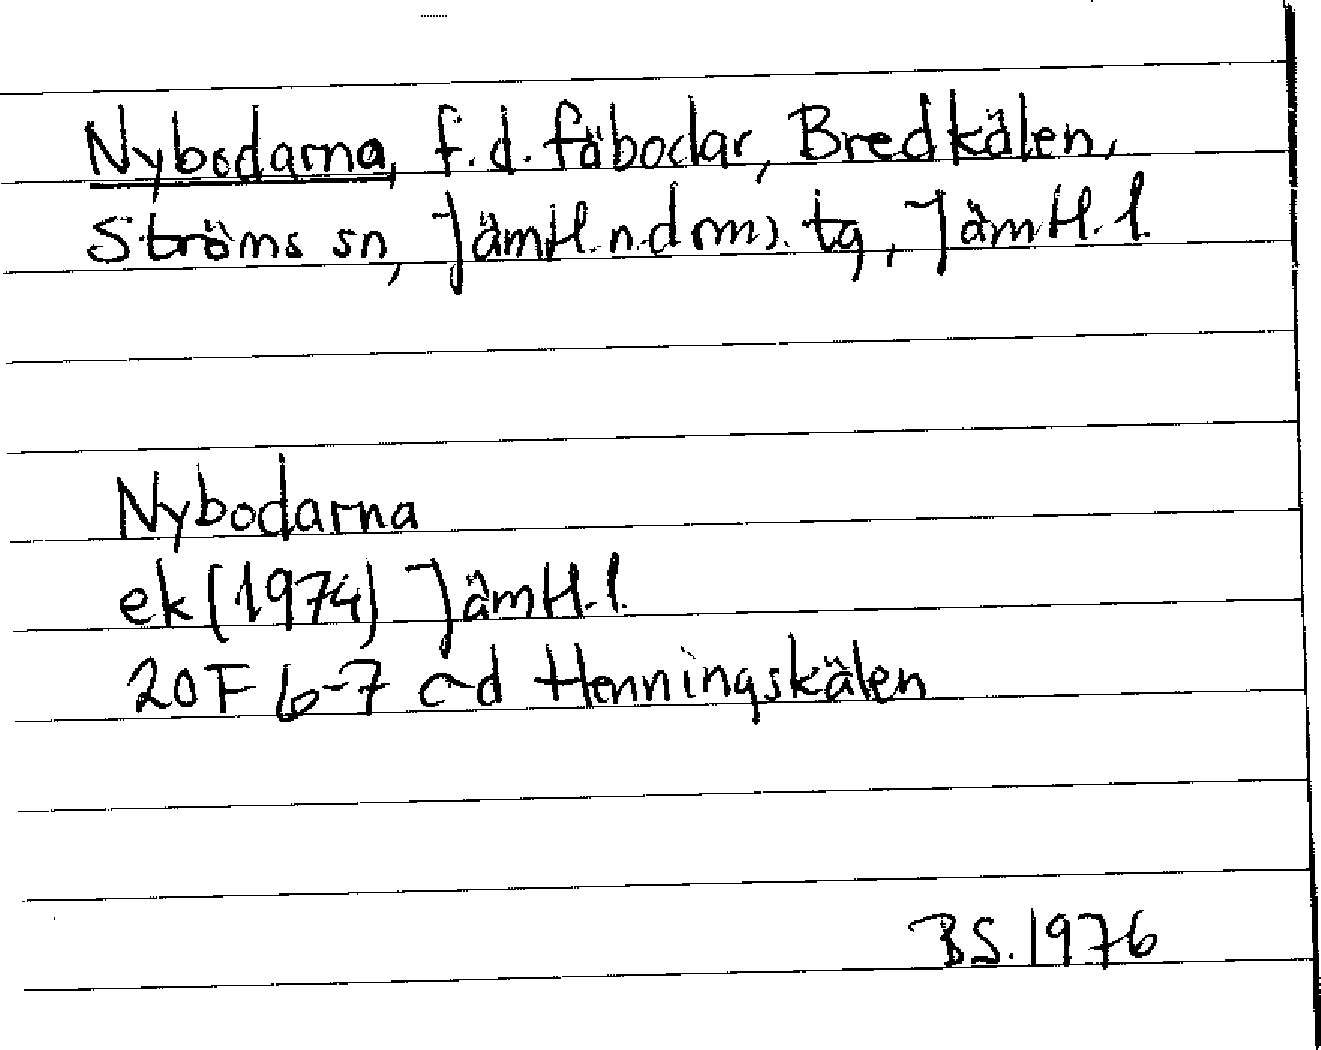 Nybodarna, f.d. fäbodar, Bredkälen,
Ströms sn, Jämtl.n.dms. tg, Jämtl.l.
Nybodarna
ek (1974) Jämtl.l.
20F 6-7 c-d Henningskälen
BS. 1976